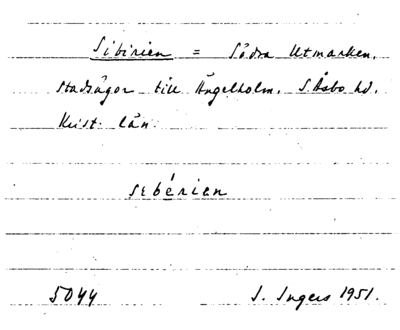 Sibirien = Södra Utmarken,
stadsägor till Ängelholm. S. Åsbo hd.
Krist. län.
sɛbérien
5044 I. Ingers 1951.